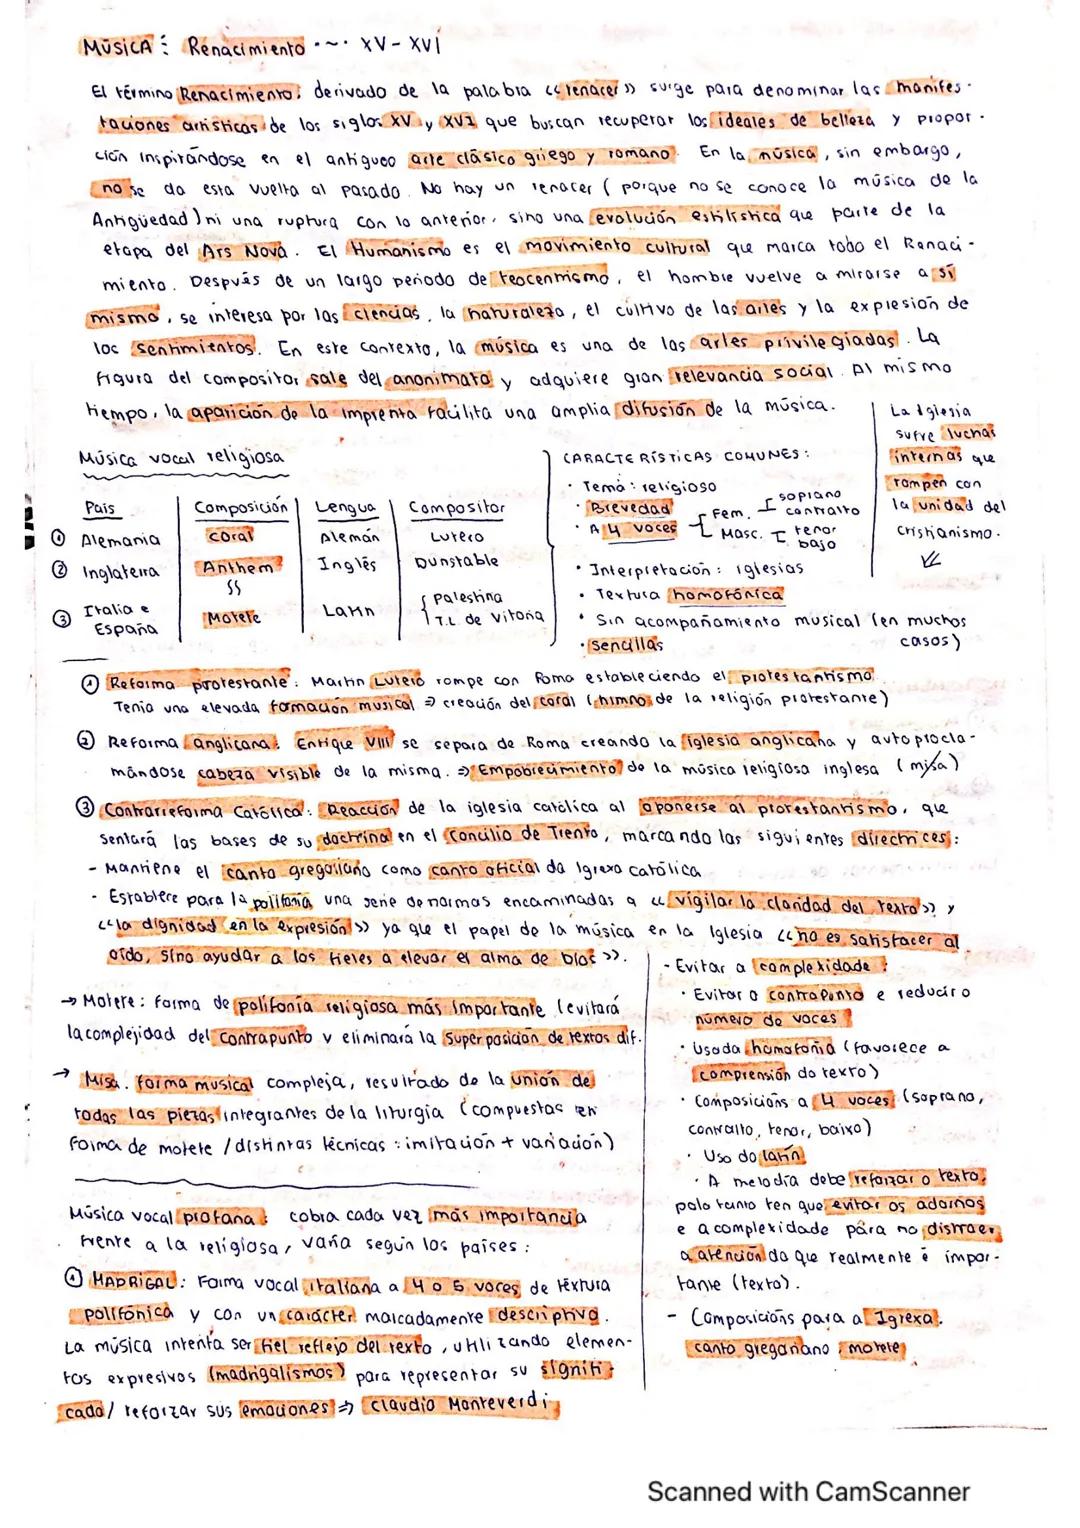 MÚSICA: Renacimiento ·~· XV - XVI
El término Renacimiento, derivado de la palabra << renacer >> surge para denominar las manifes-
taciones artísticas de los siglos XV y XVI que buscan recuperar los ideales de belleza y propor-
ción inspirándose en el antiguo arte clásico griego y romano. En la música, sin embargo,
no se da esta vuelta al pasado. No hay un renacer (porque no se conoce la música de la
Antigüedad) ni una ruptura con lo anterior, sino una evolución estilística que parte de la
etapa del Ars Nova. El Humanismo es el movimiento cultural que marca todo el Renaci-
miento. Después de un largo periodo de teocentrismo, el hombre vuelve a mirarse a sí
mismo, se interesa por las ciencias, la naturaleza, el cultivo de las artes y la expresión de
los sentimientos. En este contexto, la música es una de las artes privilegiadas. La
figura del compositor sale del anonimato y adquiere gran relevancia social. Al mismo
tiempo, la aparición de la imprenta facilita una amplia difusión de la música.
La Iglesia
sufre luchas
internas que
rompen con
la unidad del
cristianismo.
Música vocal religiosa
País Composición Lengua Compositor
① Alemania Coral Alemán Lutero
② Inglaterra Anthem Inglés Dunstable
③ Italia e España Motete Latín { Palestina T.L. de Vitoria
CARACTERÍSTICAS COMUNES:
· Tema: religioso
· Brevedad
· A 4 voces Fem. soprano contralto
Masc. tenor bajo
· Interpretación: iglesias
· Textura homofónica
· Sin acompañamiento musical (en muchos
casos)
· Sencillas
① Reforma protestante: Martín Lutero rompe con Roma estableciendo el protestantismo.
Tenía una elevada formación musical ⇒ creación del coral (himnos de la religión protestante)
② Reforma anglicana: Enrique VIII se separa de Roma creando la iglesia anglicana y autoprocla-
mándose cabeza visible de la misma. ⇒ Empobrecimiento de la música religiosa inglesa (misa)
③ Contrarreforma Católica: Reacción de la iglesia católica al oponerse al protestantismo, que
sentará las bases de su doctrina en el Concilio de Trento, marcando las siguientes directrices:
- Mantiene el canto gregoriano como canto oficial da Igrexa católica
- Establece para la polifonía una serie de normas encaminadas a << vigilar la claridad del texto >> y
<< la dignidad en la expresión >> ya que el papel de la música en la Iglesia << no es satisfacer al
oído, sino ayudar a los fieles a elevar el alma de Dios >>.
→ Motete: forma de polifonía religiosa más importante (evitará
la complejidad del contrapunto y eliminará la superposición de textos dif.
→ Misa: forma musical compleja, resultado de la unión de
todas las piezas integrantes de la liturgia (compuestas en
forma de motete / distintas técnicas: imitación + variación)
Música vocal profana: cobra cada vez más importancia
frente a la religiosa, varía según los países:
① MADRIGAL: Forma vocal italiana a 4 o 5 voces de textura
polifónica y con un carácter marcadamente descriptivo.
La música intenta ser fiel reflejo del texto, utilizando elemen-
tos expresivos (madrigalismos) para representar su signifi-
cado / reforzar sus emociones ⇒ Claudio Monteverdi
- Evitar a complexidade:
· Evitar o contrapunto e reducir o
número de voces
· Uso da homofonía (favorece a
comprensión do texto)
· Composicións a 4 voces (soprano,
contralto, tenor, baixo)
· Uso do latín
· A melodía debe reforzar o texto,
polo tanto ten que evitar os adornos
e a complexidade para no distraer
a atención do que realmente é impor-
tante (texto).
- Composicións para a Igrexa:
canto gregoriano, motete
Scanned with CamScanner